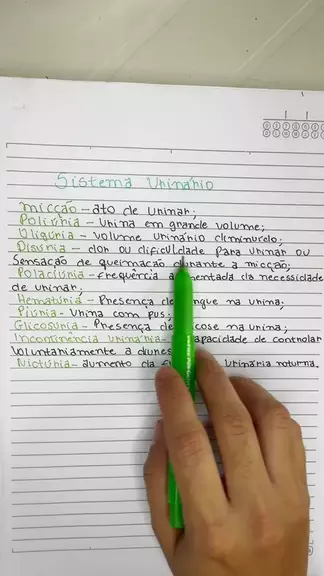 Sistema Urinário
micção - ato de urinar;
Poliúria - Urina em grande volume;
Oligúria - volume urinário diminuído;
Disúria - dor ou dificuldade para urinar ou
sensação de queimação durante a micção;
Polaciúria - Frequência da necessidade
de urinar;
Hematúria - Presença de na urina;
Piúria - Urina com pus;
Glicosúria - Presença de na urina;
Incontinência urinária - capacidade de controlar
voluntariamente a
Nictúria - aumento da urinária noturna.